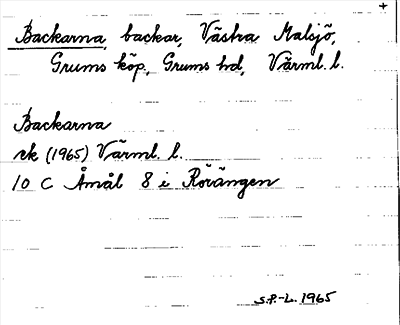 +
Backarna, backar, Västra Malsjö,
Grums köp., Grums hd, Värml. l.
Backarna
ek (1965) Värml. l.
10 C Åmål 8 i Rörängen
S.P.-L. 1965